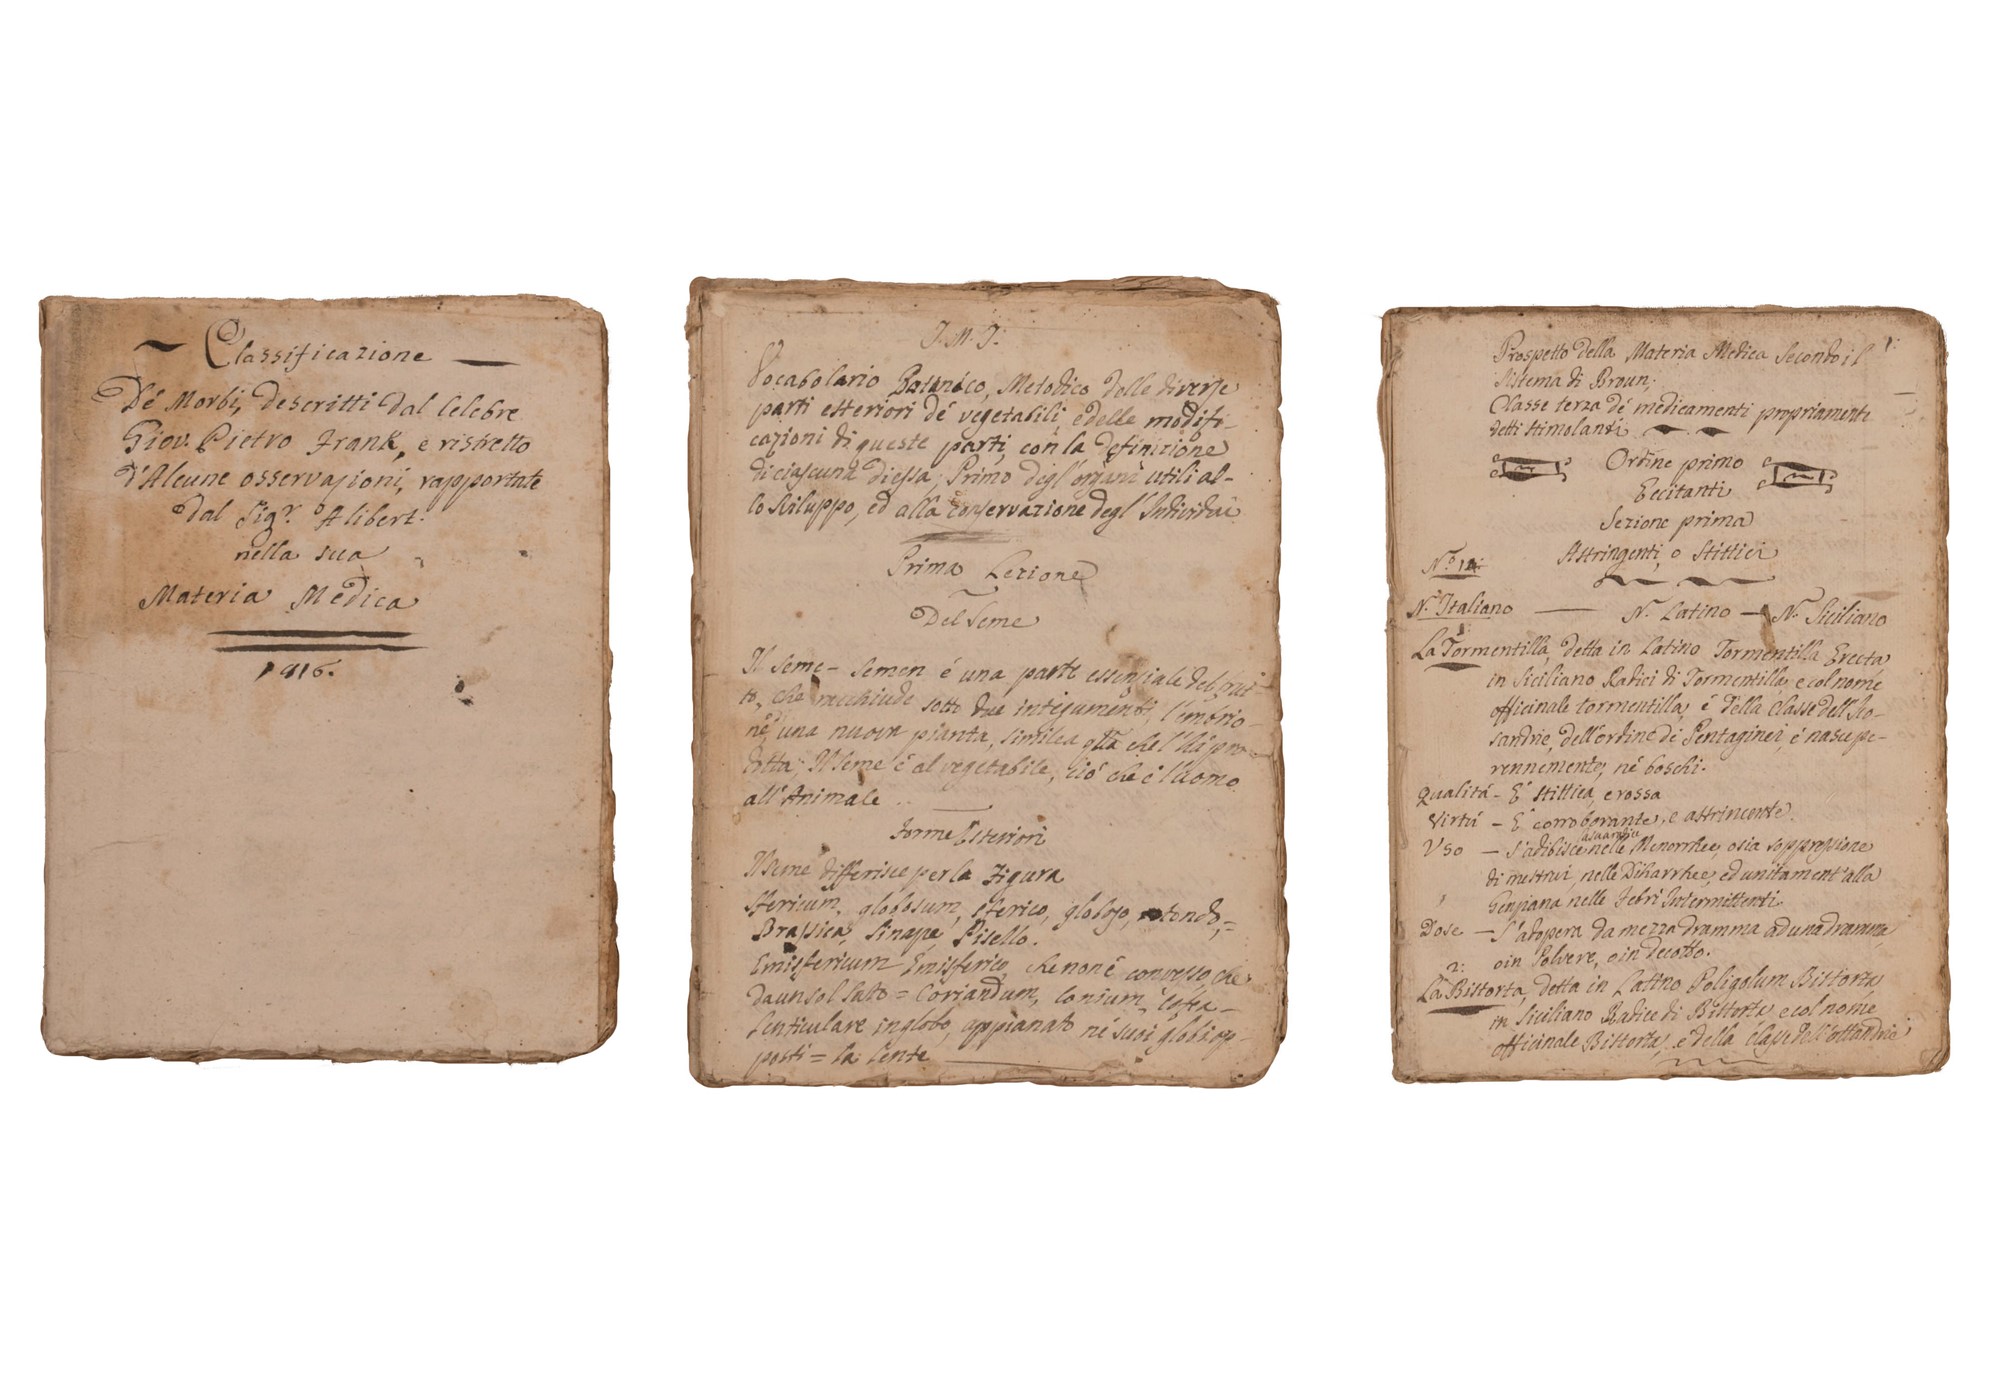 Classificazione
Dé Morbi, descritti dal Celebre
Giov. Pietro Frank, e ristretto
d'Alcune osservazioni, rapportate
dal Sigr. Alibert.
nella sua
Materia Medica
1816.
J. M. J.
Vocabolario Botanico, Metodico delle diverse
parti esteriori dé vegetabili, e delle modifi-
cazioni di queste parti, con la definizione
di ciascuna di essa; Primo degl'organi utili al-
lo sviluppo, ed alla conservazione degl'Individui
Prima Lezione
Del Seme
Il seme - semen é una parte essenziale del frut-
to, che racchiude sotto due integumenti, l'embrio-
ne, una nuova pianta, simile a che l'há pro-
dotta; Il seme é al vegetabile, ció che é l'uomo
all'Animale
Forme Esteriori
Il seme differisce per la Figura
Sfericum, globosum, sferico, globoso, rotondo, =
Brassica, Sinape, Pisello.
Emisfericum Emisferico, che non é convesso, che
da un sol lato = Coriandum, Conium,
Lenticulare in globo, appianato né suoi globi op-
posti = la lente
1.
Prospetto della Materia Medica Secondo il
Sistema di Broun;
Classe terza dé medicamenti propriamente
detti stimolanti
Ordine primo
Eccitanti
Sezione prima
Astringenti, o Stittici
N.º 1:
N. Italiano — N. Latino — N. Siciliano
La Tormentilla, detta in Latino Tormentilla Erecta
in Siciliano Radici di Tormentilla, e col nome
officinale tormentilla, é della Classe dell'Ico-
sandrie, dell'ordine dé Pentaginei, é nasce pe-
rennemente, né boschi.
Qualitá - É stittica, e rossa
Virtú - É corroborante, e astrincente.
Uso - S'adibisce nelle Menorrhee, o sia soppressione
di mestrui, nelle Diharrhee, ed unitament'alla
Genziana nelle Febri Intermittenti.
Dose - S'adopera da mezza dramma ad una dramma,
o in Polvere, o in decotto.
2:
La Bistorta, detta in Latino Poligolum Bistorta
in Siciliano Radice di Bistorta e col nome
officinale Bistorta, é della Classe dell'ottandrie